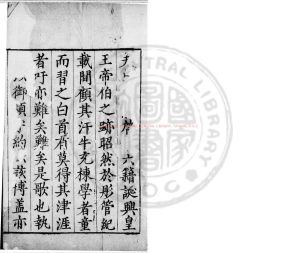 六籍誕興皇
王帝伯之跡昭然於彤管紀
載間顧其汗牛充棟學者童
而習之白首有莫得其津涯
者吁亦難矣難矣是歌也執
御 約 該博蓋亦
CENTRAL LIBRARY